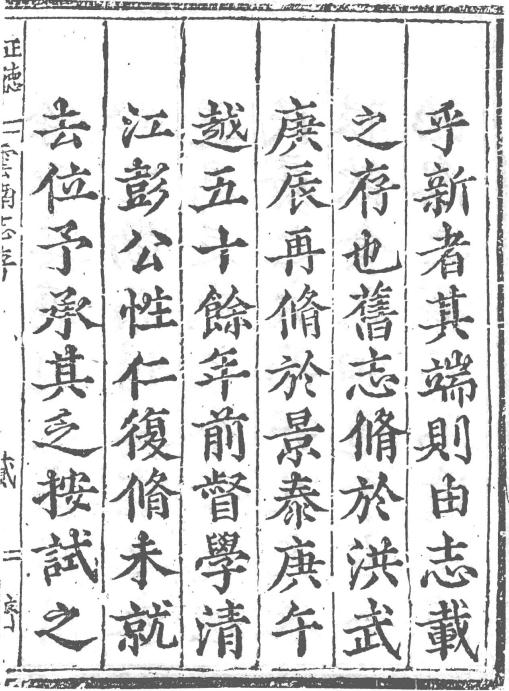 乎新者其端則由志載
之存也舊志脩於洪武
庚辰再脩於景泰庚午
越五十餘年前督學清
江彭公性仁復脩未就
去位予承其乏按試之
正德